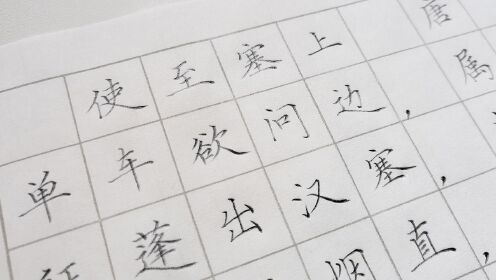 使至塞上 唐
单车欲问边，属
蓬出汉塞，
烟直，